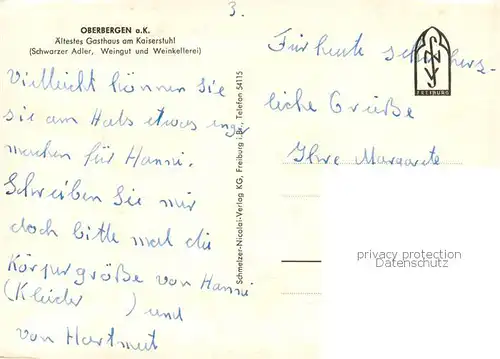 3.
OBERBERGEN a.K.
Ältestes Gasthaus am Kaiserstuhl
(Schwarzer Adler, Weingut und Weinkellerei)
Vielleicht können Sie
sie am Hals etwas enger
machen für Hanni.
Schreiben Sie mir
doch bitte mal die
Körpergröße von Hanni
(Kleider ) und
von Hartmut
Schmelzer-Nicolai-Verlag KG, Freiburg i. Br., Telefon 54115
Für heute schöne herz-
liche Grüße
Ihre Margarete
FREIBURG
privacy protection
Datenschutz